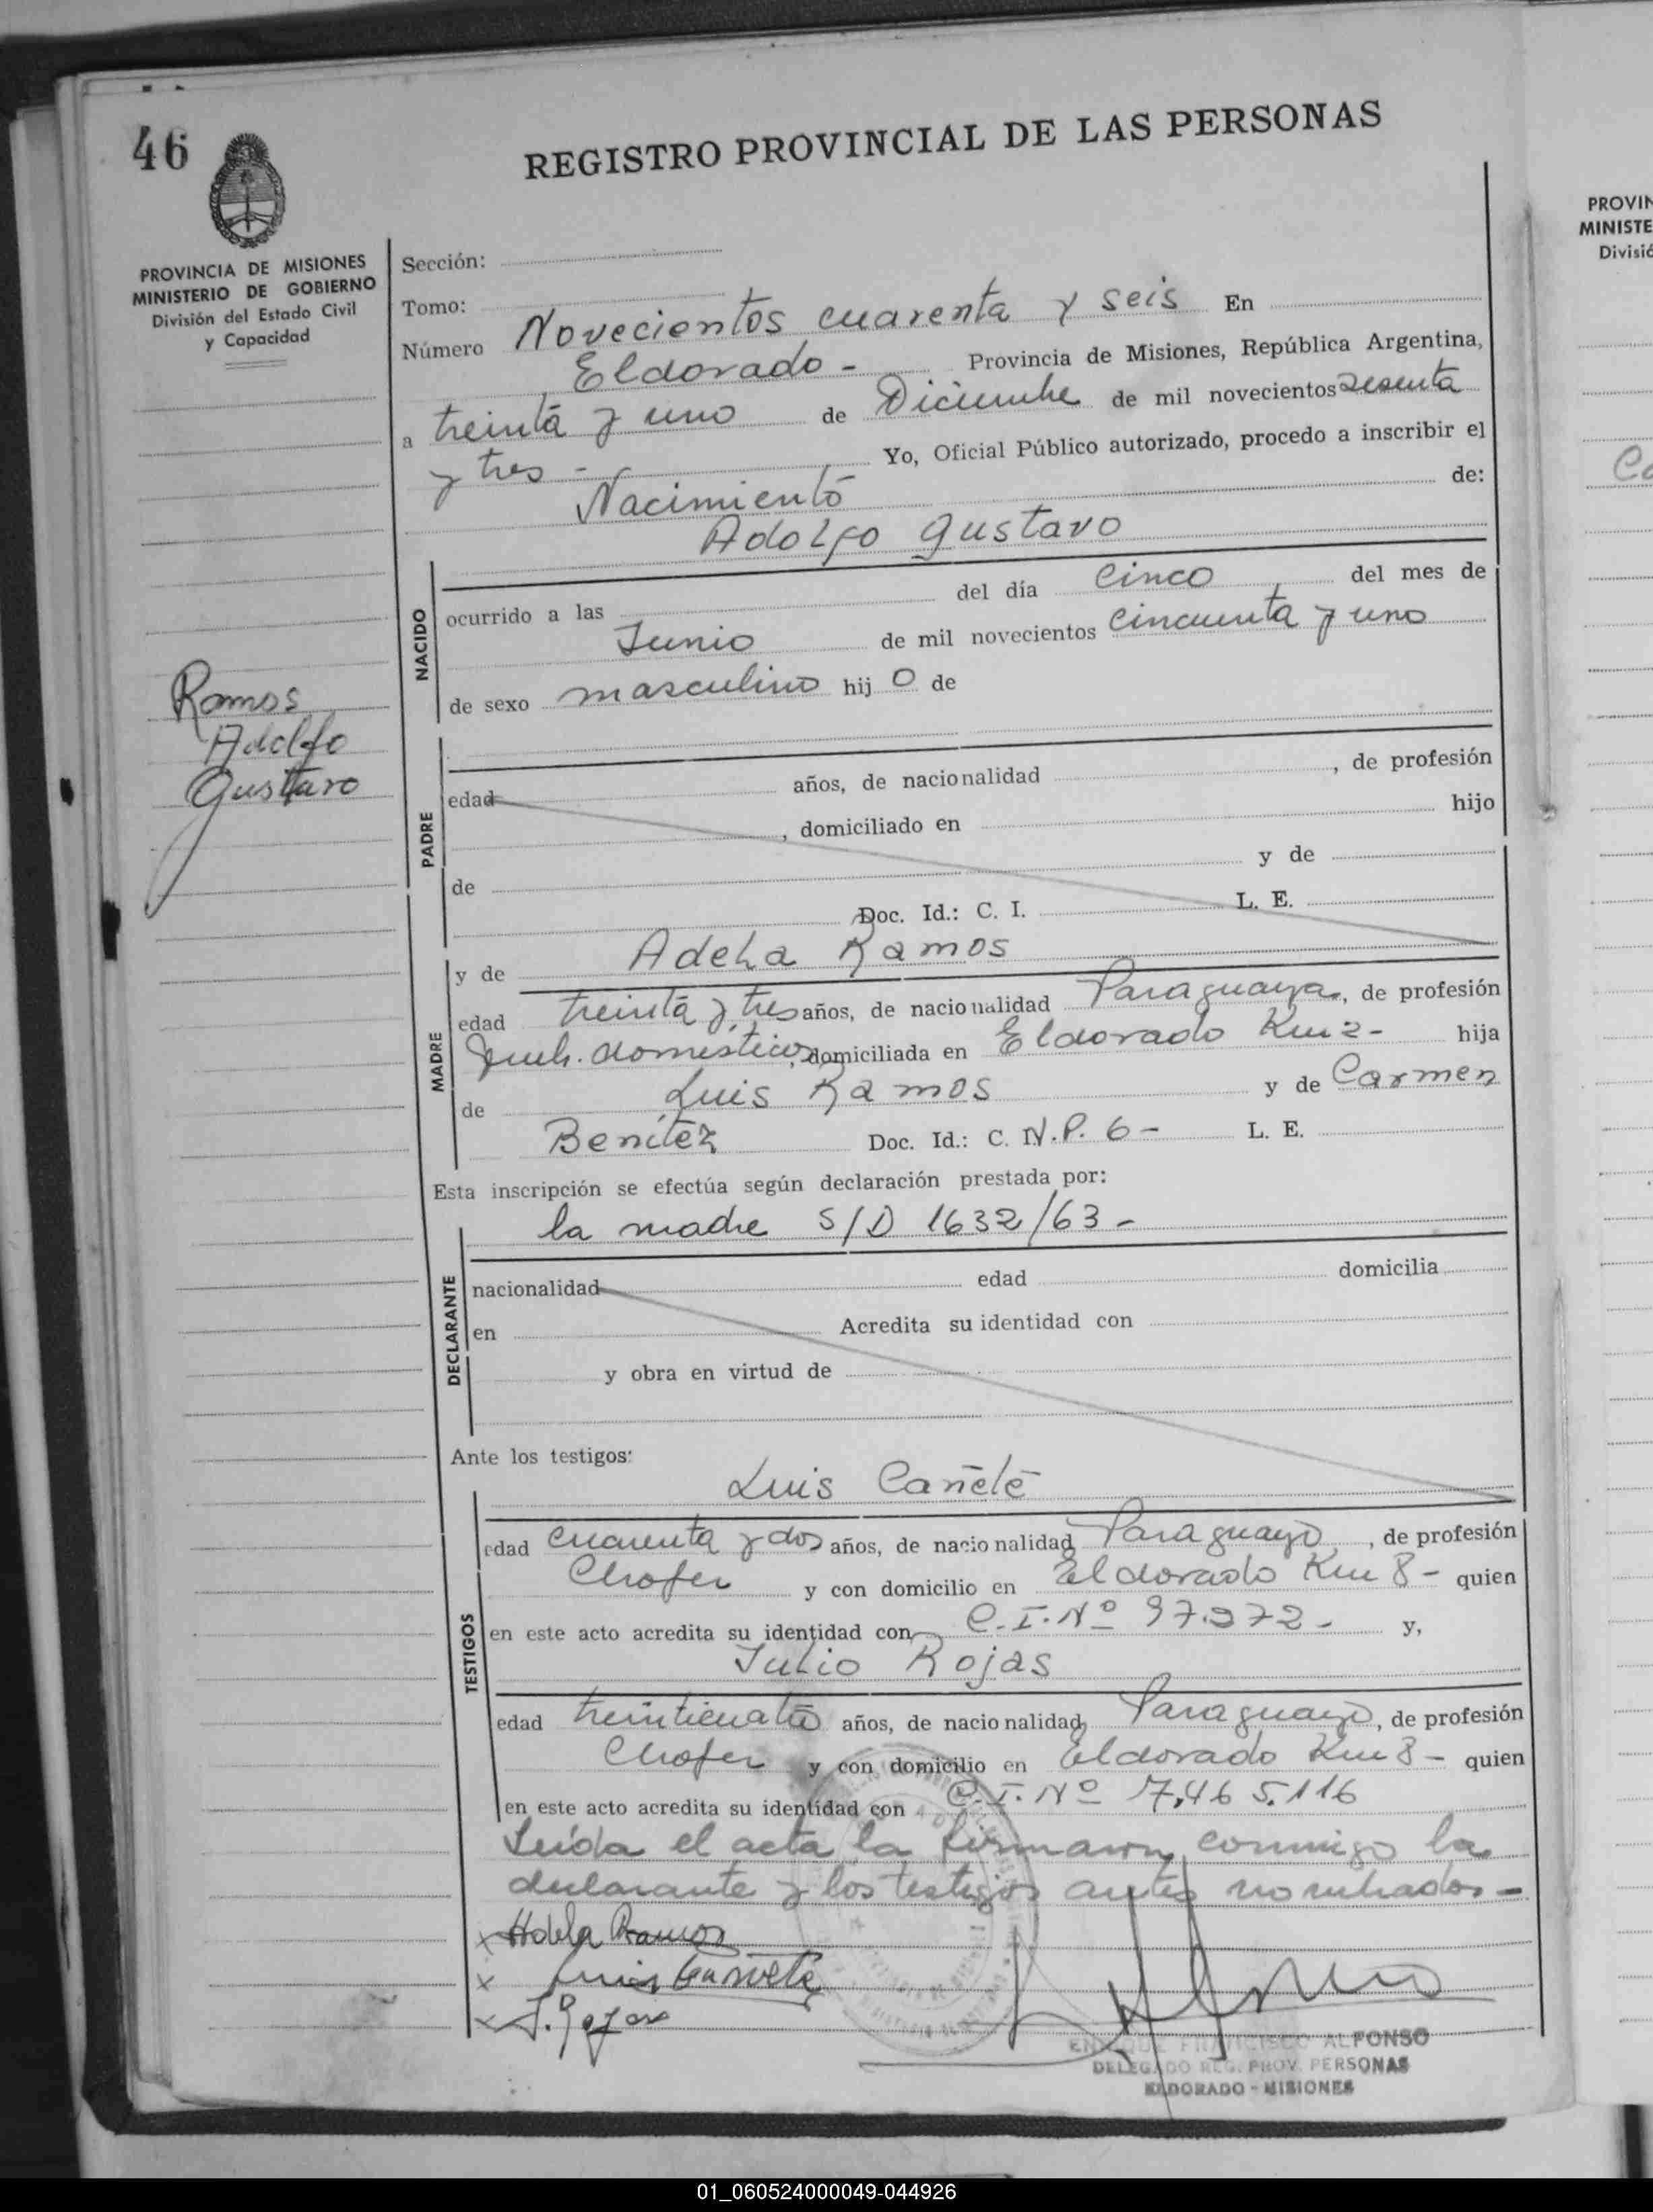 46
REGISTRO PROVINCIAL DE LAS PERSONAS
PROVINCIA DE MISIONES
MINISTERIO DE GOBIERNO
División del Estado Civil
y Capacidad
Sección:
Tomo:
Número Novecientos cuarenta y seis En
Eldorado - Provincia de Misiones, República Argentina,
a treinta y uno de Diciembre de mil novecientos sesenta
y tres - Yo, Oficial Público autorizado, procedo a inscribir el
Nacimiento de:
Adolfo Gustavo
NACIDO
ocurrido a las del día cinco del mes de
Junio de mil novecientos cincuenta y uno
de sexo masculino hij o de
Ramos
Adolfo
Gustavo
PADRE
edad años, de nacionalidad , de profesión
, domiciliado en hijo
de y de
Doc. Id.: C. I. L. E.
MADRE
y de Adela Ramos
edad treinta y tres años, de nacionalidad Paraguaya, de profesión
domiciliada en Eldorado Km 2- hija
de Luis Ramos y de Carmen
Benítez Doc. Id.: C. N.P. 6 - L. E.
Esta inscripción se efectúa según declaración prestada por:
la madre S/D 1632/63 -
DECLARANTE
nacionalidad edad domicilia
en Acredita su identidad con
y obra en virtud de
Ante los testigos:
Luis Cañete
TESTIGOS
edad cuarenta y dos años, de nacionalidad Paraguayo, de profesión
Chofer y con domicilio en Eldorado Km 8 - quien
en este acto acredita su identidad con C.I. Nº 97.972 - y,
Julio Rojas
edad treinticuatro años, de nacionalidad Paraguayo, de profesión
Chofer y con domicilio en Eldorado Km 8 - quien
en este acto acredita su identidad con C.I. Nº 7,465.116
Leída el acta la firmaron conmigo la
declarante y los testigos antes nombrados -
x Adela Ramos
x Luis Cañete
x J. Rojas
ENRIQUE FRANCISCO ALFONSO
DELEGADO REG. PROV. PERSONAS
ELDORADO - MISIONES
PROVIN
MINISTE
Divisió
01_060524000049-044926